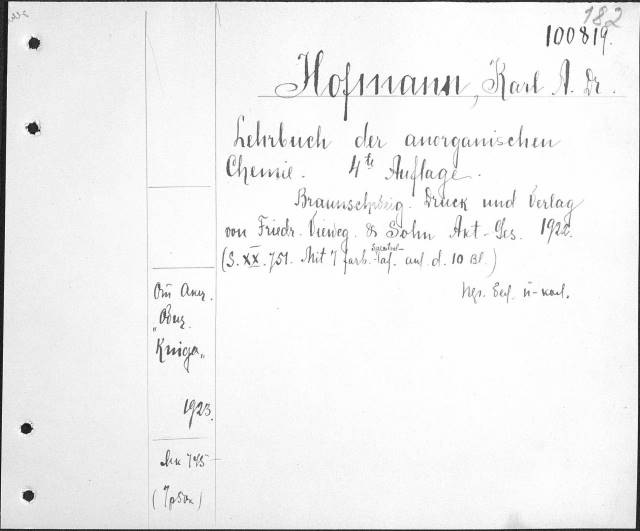 182
100819.
Hofmann, Karl A. Dr.
Lehrbuch der anorganischen
Chemie. 4te Auflage.
Braunschweig. Druck und Verlag
von Friedr. Vieweg & Sohn Akt-Ges. 1922.
(S. XX. 751. Mit 7 farb. Spectral-Taf. auf. d. 10 Bl.)
Om
"
Kniga"
1923.